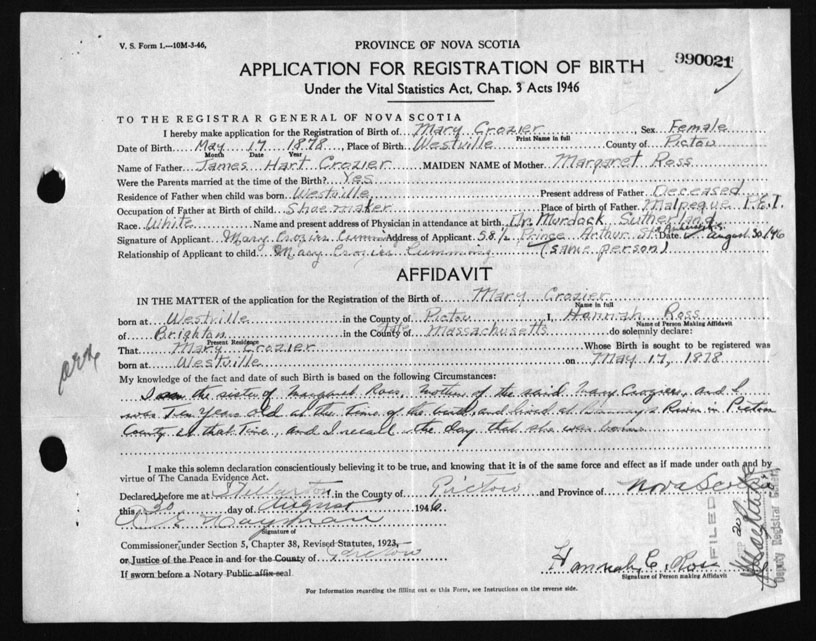 V. S. Form 1.—10M-3-46,
PROVINCE OF NOVA SCOTIA
990021
APPLICATION FOR REGISTRATION OF BIRTH
Under the Vital Statistics Act, Chap. 3 Acts 1946
TO THE REGISTRAR GENERAL OF NOVA SCOTIA
I hereby make application for the Registration of Birth of Mary Crozier Sex Female
Print Name in full
Date of Birth May 17 1878, Place of Birth Westville County of Pictou
Month Date Year
Name of Father James Hart Crozier MAIDEN NAME of Mother Margaret Ross
Were the Parents married at the time of the Birth? Yes
Residence of Father when child was born Westville Present address of Father Deceased
Occupation of Father at Birth of child Shoemaker Place of Birth of Father Malpeque P.E.I.
Race White Name and present address of Physician in attendance at birth Dr. Murdock Sutherland
Signature of Applicant Mary Crozier Address of Applicant 58½ Prince Arthur St. Date August 30/46
Relationship of Applicant to child? Mary Crozier Cumming (same person)
AFFIDAVIT
IN THE MATTER of the application for the Registration of the Birth of Mary Crozier
Name in full
born at Westville in the County of Pictou I, Hannah Ross
Name of Person Making Affidavit
of Brighton in the County State Massachusetts do solemnly declare:
Present Residence
That Mary Crozier Whose Birth is sought to be registered was
born at Westville on May 17, 1878
My knowledge of the fact and date of such Birth is based on the following Circumstances:
I am the sister of Margaret Ross, mother of the said Mary Crozier, and I
was Ten Years old at the Time of the birth, and lived at River in Pictou
County at that Time, and I recall the day that she was born
I make this solemn declaration conscientiously believing it to be true, and knowing that it is of the same force and effect as if made under oath and by
virtue of The Canada Evidence Act.
Declared before me at Stellarton in the County of Pictou and Province of Nova Scotia
this 30 day of August 1946
Signature of
Commissioner, under Section 5, Chapter 38, Revised Statutes, 1923,
or Justice of the Peace in and for the County of Pictou
If sworn before a Notary Public affix seal
Hannah C. Ross
Signature of Person making Affidavit
FILED
Deputy Registrar General
For Information regarding the filling out of this Form, see Instructions on the reverse side.